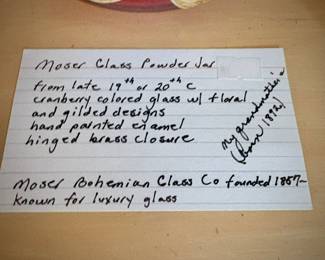 Moser Glass Powder Jar
from late 19th or 20th C
cranberry colored glass w/ floral
and gilded designs
hand painted enamel
hinged brass closure
my grandmother's
(born 1892)
Moser Bohemian Glass Co founded 1857-
known for luxury glass